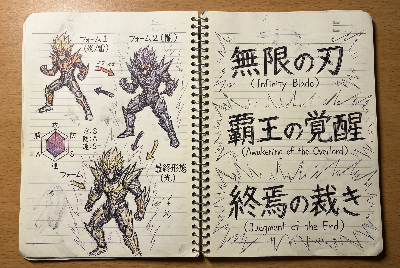 フォーム1
フォーム2(闇)
フォーム
最終形態
(光)
無限の刃
(Infinity Blade)
覇王の覚醒
(Awakening of the Overlord)
終焉の裁き
(Judgment of the End)